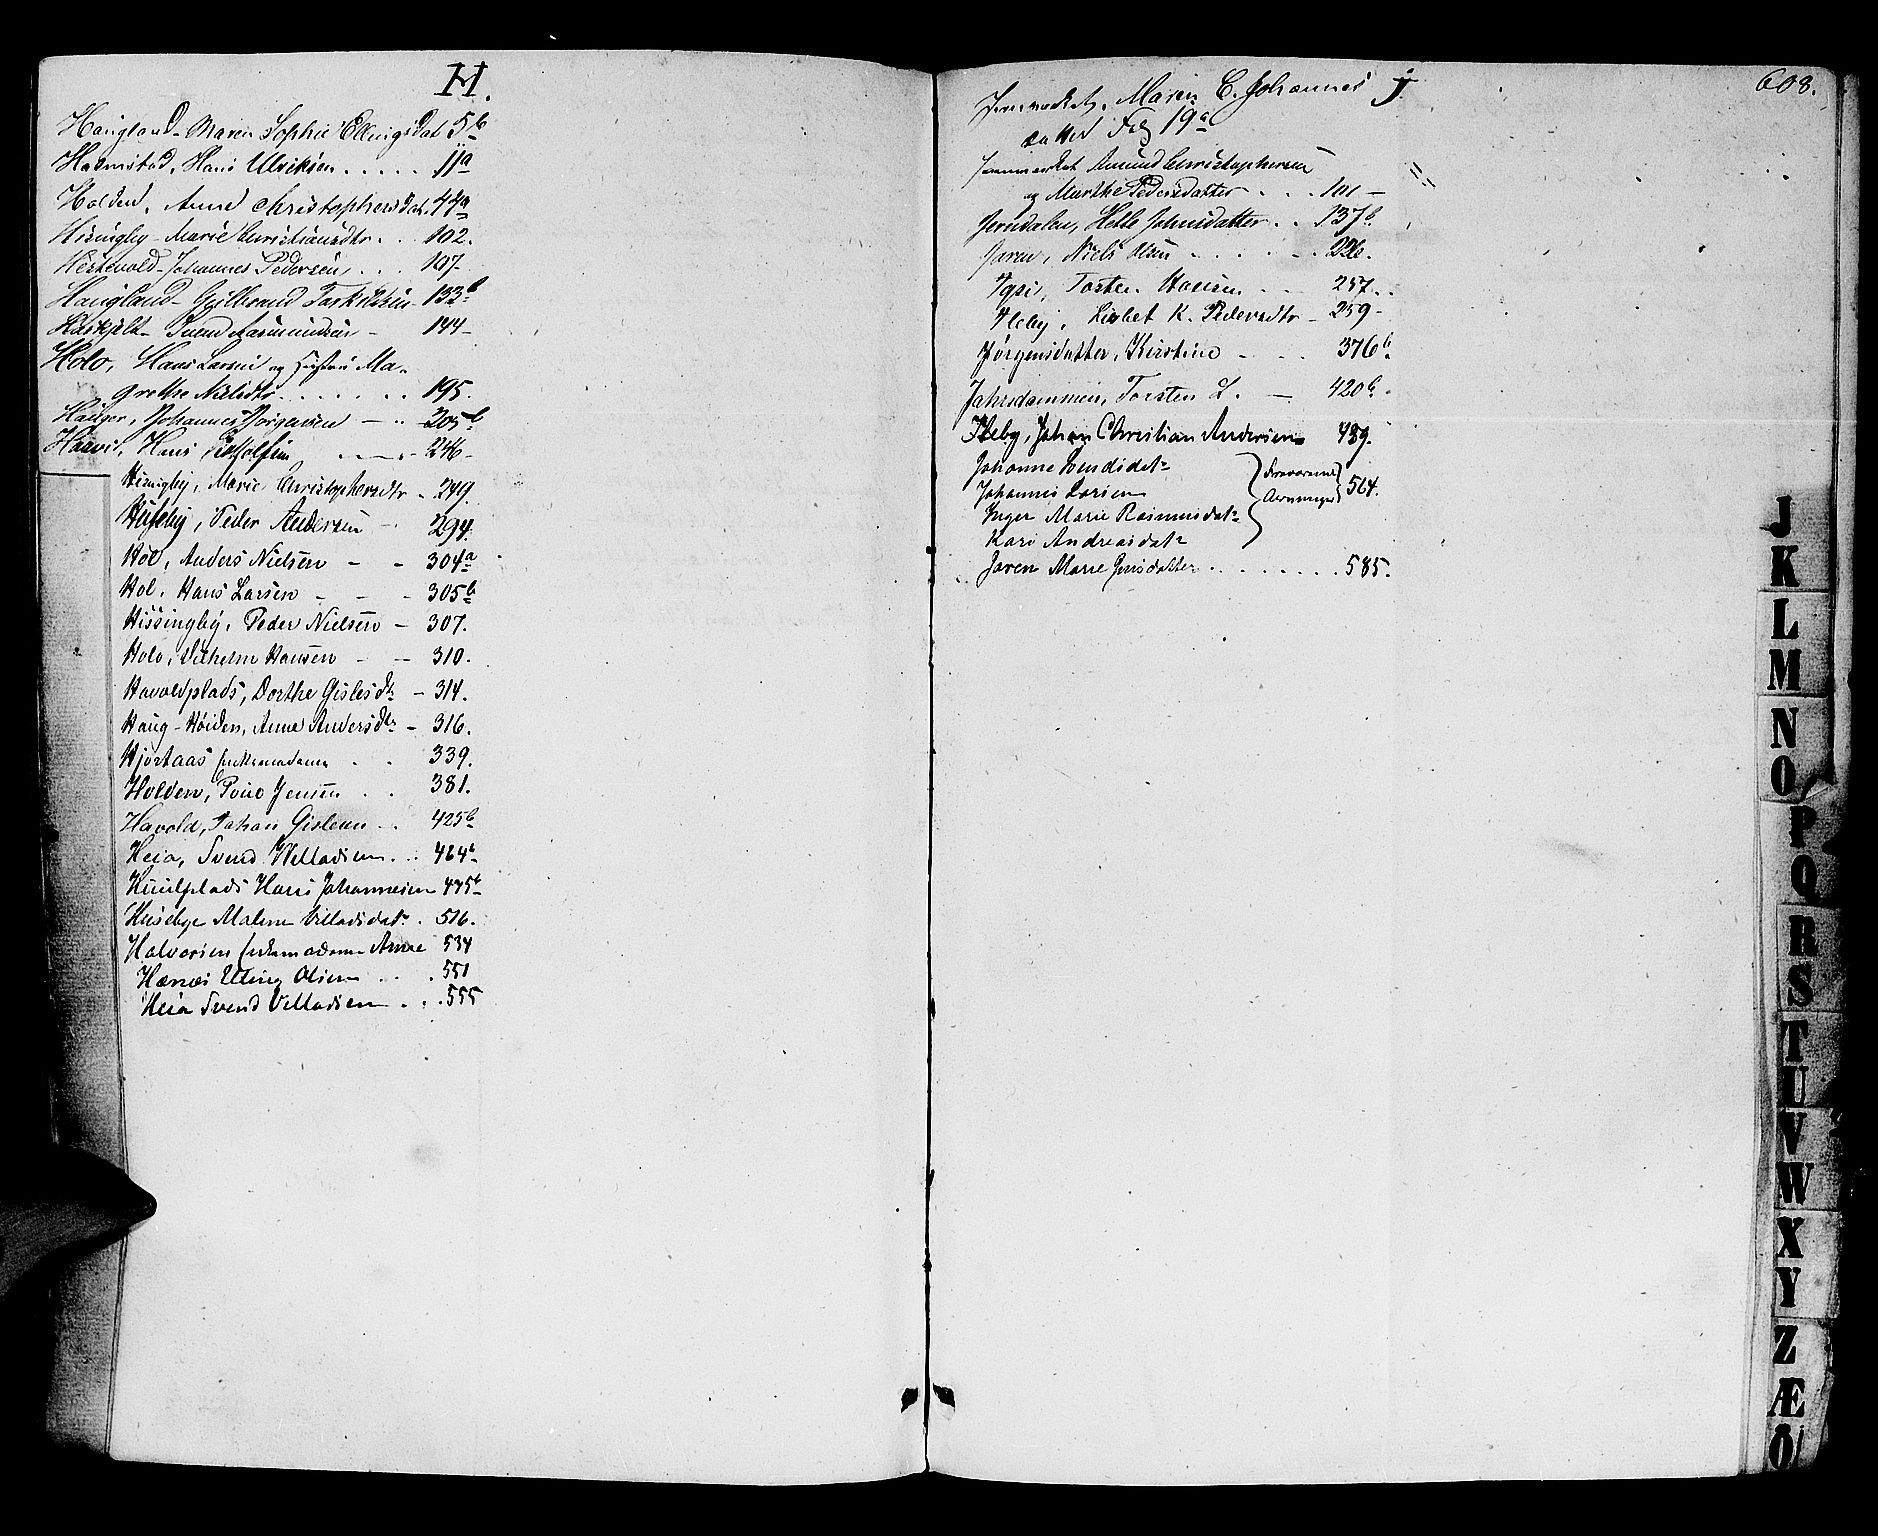 H.
Haugland - Maren Sophie Ellingsdat 5b
Halmstad, Hans Ulriksen ..... 11a
Holden, Anne Christophersdat. 44a
Hisingby - Marie Christiansdtr. .. 102.
Hestevold - Johannes Pedersen ... 107-
Haugland - Gulbrand Torkildsen - 133b
Svend Aasmundsen - 144-
Holo, Hans Larsen og Hustru Ma-
grethe Nielsdtr. ....... 195.
Hauger, Johannes Jörgensen - .. 205b
Hans - 246-
Hisingby, Marie Christophersdtr - 249.
Huseby, Peder Andersen - 294.
Hol, Anders Nielsen - - 304a
Hol, Hans Larsen - - - 305b
Hissingby, Peder Nielsen - 307.
Holo, Vilhelm Hansen - - 310.
Havoldplads, Dorthe Gislesdtr - 314.
Haug-Höiden, Anne Andersdtr - 316.
Hjortaas Enkemadame . . 339.
Holden, Jensen . . 381.
Havold, Johan Gislesen .. 425b
Heia, Svend Villadsen ... 464b
Hans Johannesen 475b
Husebye Malene Villadsdatr. 516.
Halvorsen Enkemadame Anne 534
Elling Olsen ... 551
Heia Svend Villadsen ... 555
J.
608.
Maren C. Johannes
datter Fol 19a
Amund Christophersen
og Marthe Pedersdatter ... 101-
Jerndalen, Helle Johnsdatter .. 137b
Jaren, Niels 226.
Torsten Hansen - - 257..
Ileby, Lisbet K. Pedersdtr - 259-
Jörgensdatter, Kirstine - - - 376b
Torsten L. - 420b
Ileby, Johan Christian Andersen 489.
Johanne datr
Johannes Larsen
564.
Inger Marie Rasmusdatr
Kari Andreasdatr
Jaren Marie Jensdatter ........ 585.
J
K
L
M
N
O
P
Q
R
S
T
U
V
W
X
Y
Z
Æ
Ö